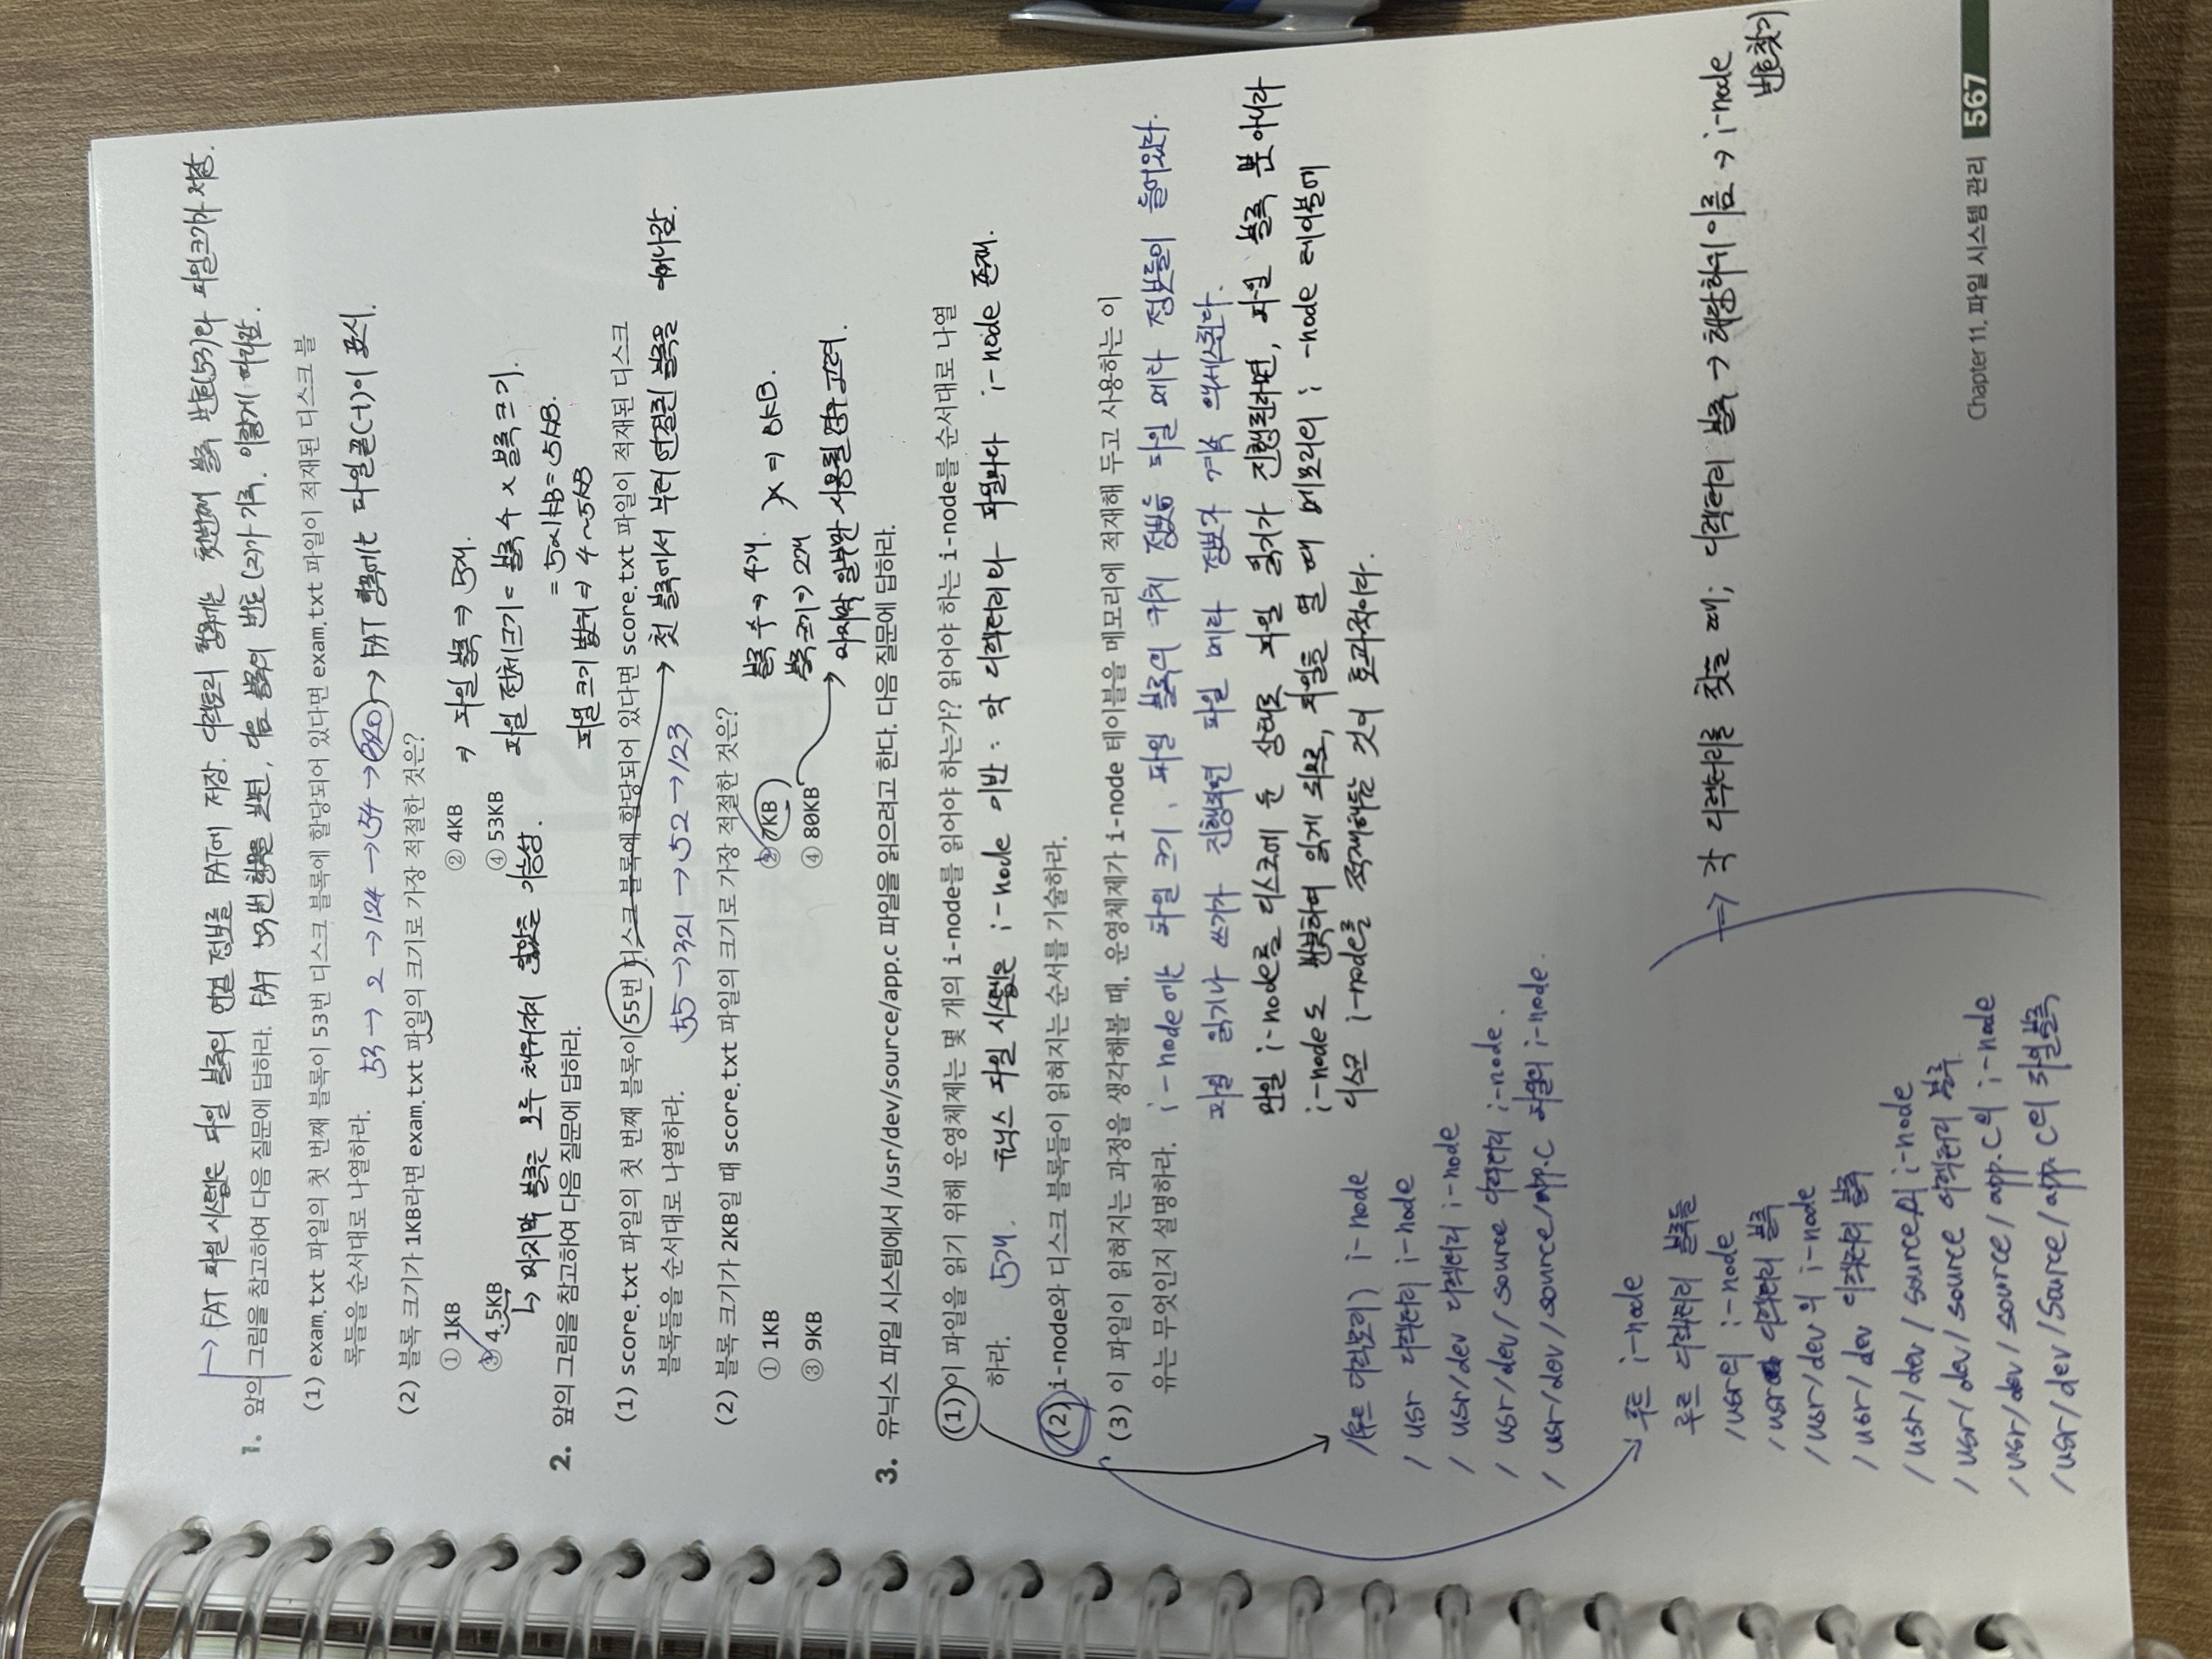 → FAT 파일 시스템은 파일 블록의 연결 정보를 FAT에 저장. 디렉토리 항목에는 첫번째 블록 번호(53)와 파일크기가 저장.
1. 앞의 그림을 참고하여 다음 질문에 답하라. FAT 53번 항목을 보면, 다음 블록의 번호(2)가 기록. 이렇게 따라감.
(1) exam.txt 파일의 첫 번째 블록이 53번 디스크 블록에 할당되어 있다면 exam.txt 파일이 적재된 디스크 블
록들을 순서대로 나열하라. 53 → 2 → 124 → 54 → 320 → FAT 항목에는 파일끝(-1)이 표시.
(2) 블록 크기가 1KB라면 exam.txt 파일의 크기로 가장 적절한 것은?
① 1KB ② 4KB ⇒ 파일 블록 ⇒ 5개.
③ 4.5KB ④ 53KB 파일 전체크기 = 블록 수 x 블록크기.
↳ 마지막 블록은 모두 채워지지 않았을 가능성. = 5x1KB = 5KB.
2. 앞의 그림을 참고하여 다음 질문에 답하라. 파일크기 범위 ⇒ 4~5KB
(1) score.txt 파일의 첫 번째 블록이 55번 디스크 블록에 할당되어 있다면 score.txt 파일이 적재된 디스크
→ 첫 블록에서 부터 연결된 블록을
블록들을 순서대로 나열하라. 55 → 321 → 52 → 123
(2) 블록 크기가 2KB일 때 score.txt 파일의 크기로 가장 적절한 것은?
① 1KB ② 7KB 블록 수 → 4개. x ⇒ 8KB.
③ 9KB ④ 80KB 블록크기 ⇒ 2개
→ 마지막 일부만 사용될 경우 고려.
3. 유닉스 파일 시스템에서 /usr/dev/source/app.c 파일을 읽으려고 한다. 다음 질문에 답하라.
(1) 이 파일을 읽기 위해 운영체제는 몇 개의 i-node를 읽어야 하는가? 읽어야 하는 i-node를 순서대로 나열
하라. 5개. 유닉스 파일 시스템은 i-node 기반 : 각 디렉터리와 파일마다 i-node 존재.
(2) i-node와 디스크 블록들이 읽혀지는 순서를 기술하라.
(3) 이 파일이 읽혀지는 과정을 생각해볼 때, 운영체제가 i-node 테이블을 메모리에 적재해 두고 사용하는 이
유는 무엇인지 설명하라. i-node에는 파일 크기, 파일 블록의 위치 정보등 파일 메타 정보들이 들어있다.
파일 읽기나 쓰기가 진행되면 파일 메타 정보가 계속 액세스된다.
만일 i-node를 디스크에 둔 상태로 파일 읽기가 진행된다면, 파일 블록 뿐 아니라
i-node도 반복하여 읽게 되므로, 파일을 열 때 메모리의 i-node 테이블에
디스크 i-node를 적재해두는 것이 효과적이다.
/(루트 디렉토리) i-node
/usr 디렉터리 i-node
/usr/dev 디렉터리 i-node
/usr/dev/source 디렉터리 i-node.
/usr/dev/source/app.c 파일의 i-node.
→ 루트 i-node
루트 디렉터리 블록들
/usr의 i-node
/usr 디렉터리 블록
⇒ 각 디렉터리를 찾을 때; 디렉터리 블록 → 해당하위 이름 → i-node
번호찾기
/usr/dev의 i-node
/usr/dev 디렉터리 블록
/usr/dev/source의 i-node
/usr/dev/source 디렉터리 블록
/usr/dev/source/app.c의 i-node
/usr/dev/source/app.c의 파일블록
Chapter 11. 파일 시스템 관리 567